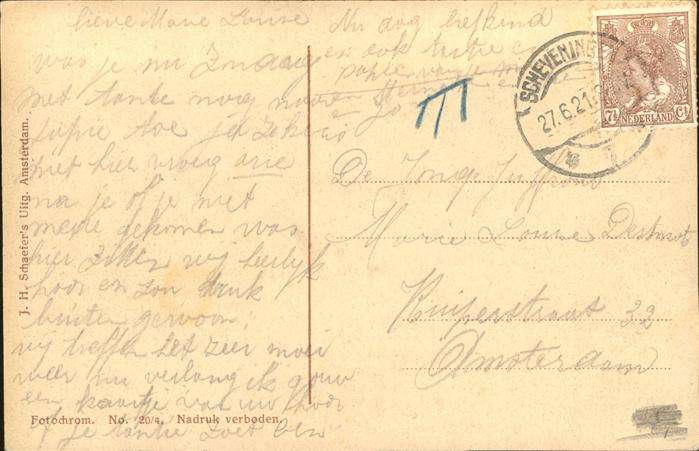 lieve Marie Louise
was je nu Zondag
met tante nog naar
met hier vroeg
na je of je niet
mede gekomen was
hier Zitten wij heerlijk
hoor en Zon
buiten gewoon,
wij treffen het zeer mooi
weer nu verlang ik gouw
een kaartje van uw hoor
of je tante Zoet ben
Nu dag liefkind
en ook tante
SCHEVENINGEN
27.6.21
7½ NEDERLAND Ct
De Jonge Juffrouw
Marie Louise
Kuiperstraat 32
Amsterdam
J. H. Schaefer's Uitg. Amsterdam.
Fotochrom. No. 20/4. Nadruk verboden.